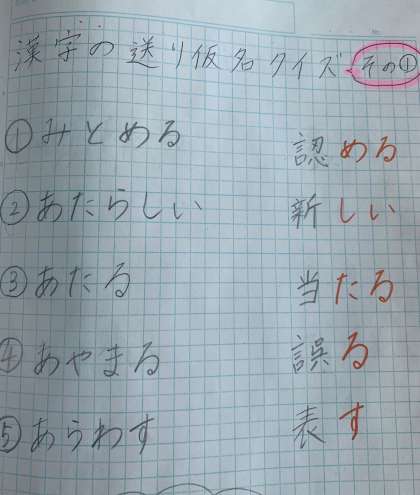 漢字の送り仮名クイズ その①
①みとめる 認める
②あたらしい 新しい
③あたる 当たる
④あやまる 誤る
⑤あらわす 表す